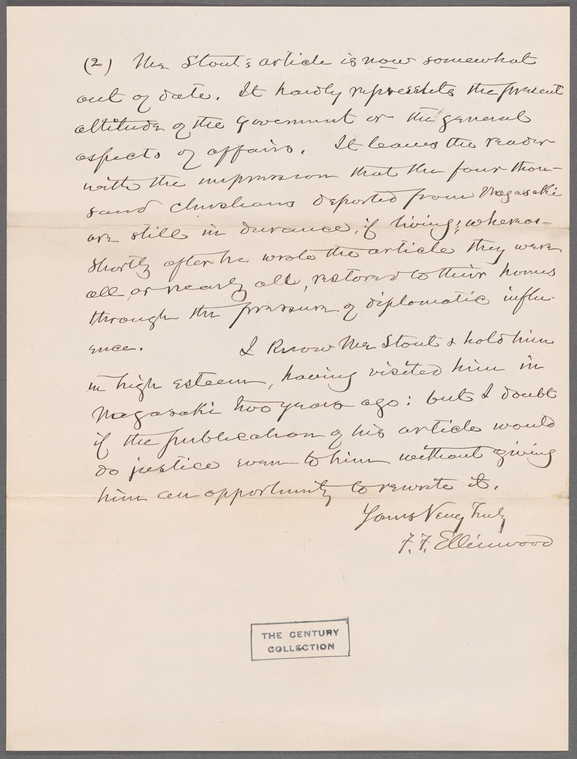 (2) Mr Stout's article is now somewhat
out of date. It hardly represents the present
attitude of the Goverment or the general
aspects of affairs. It leaves the reader
with the impression that the four thou-
sand Christians deported from Nagasaki
are still in durance, if living; whereas
shortly after he wrote the article they were
all, or nearly all, restored to their homes
through the pressure of diplomatic influ-
ence. I know Mr Stout & hold him
in high esteem, having visited him in
Nagasaki two years ago: but I doubt
if the publication of his article would
do justice even to him without giving
him an opportunity to rewrite it.
Yours Very Truly
F. F. Ellinwood
THE CENTURY
COLLECTION